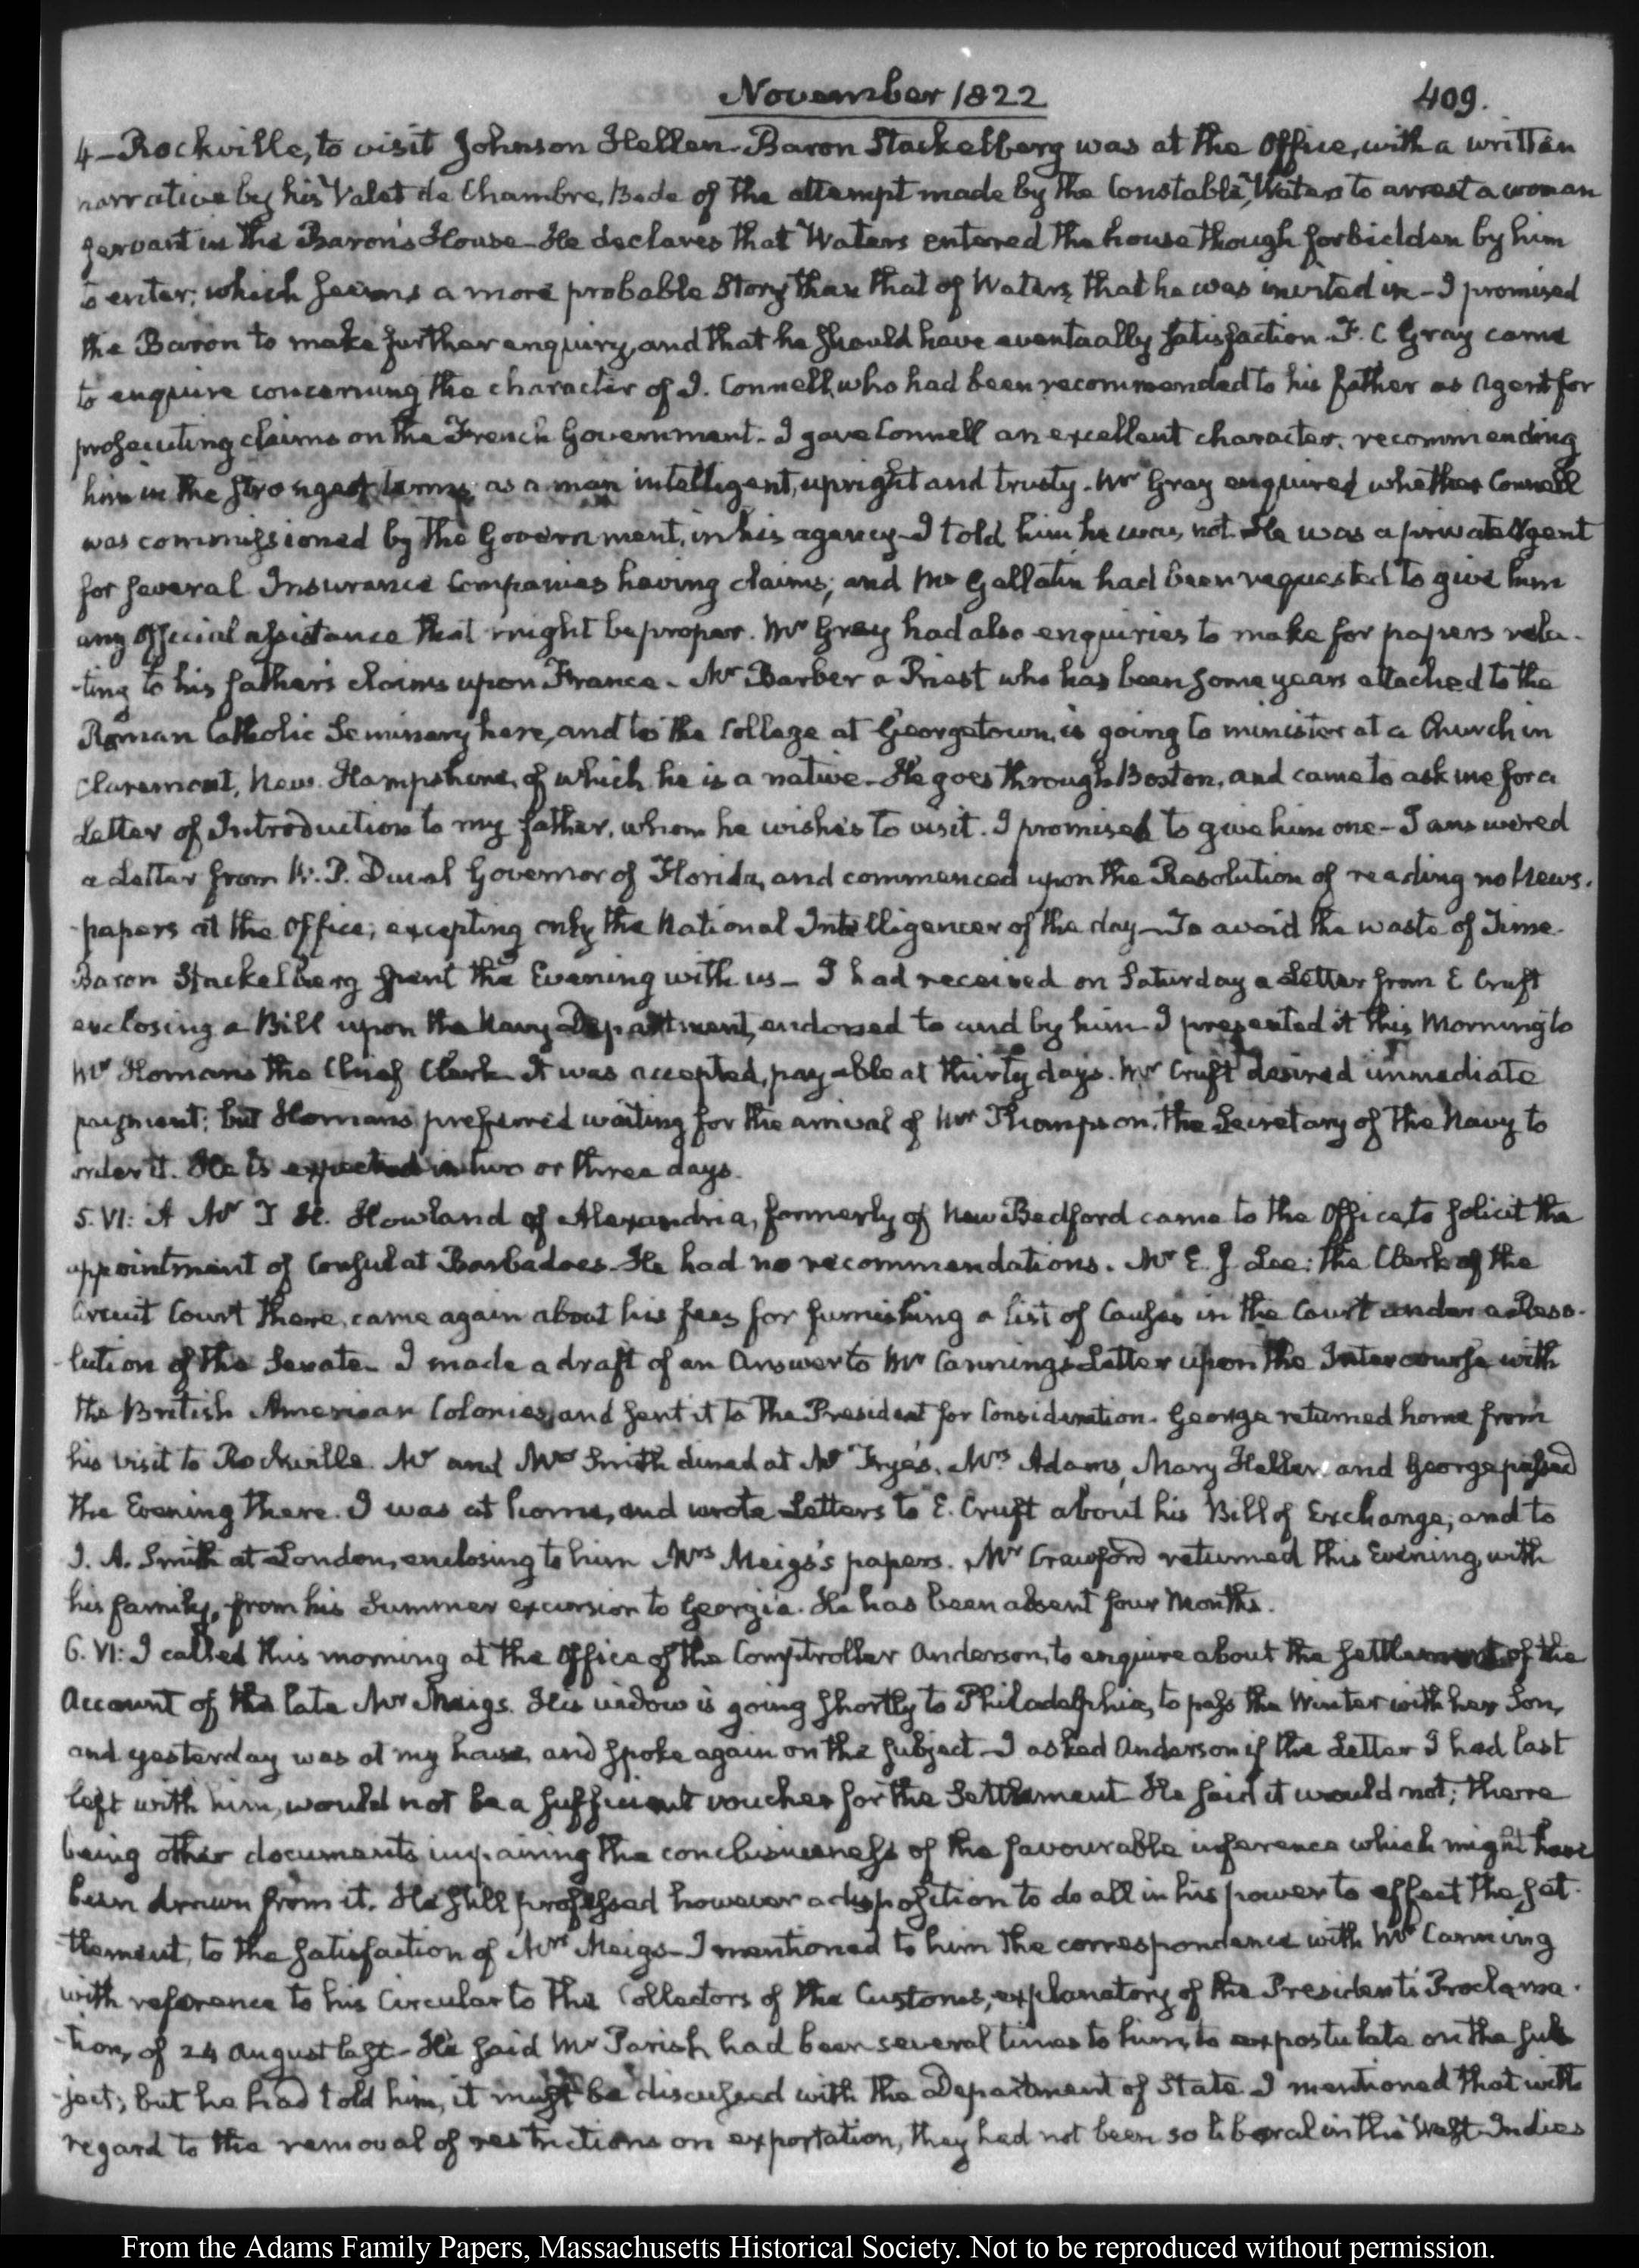 November 1822
409.
4 – Rockville, to visit Johnson Hellen – Baron Stackelberg was at the Office, with a written
narrative by his Valet de Chambre, Bede of the attempt made by the Constable, Waters to arrest a woman
servant in the Baron's House – He declares that Waters entered the house though forbidden by him
to enter; which seems a more probable Story than that of Waters, that he was invited in – I promised
the Baron to make further enquiry, and that he should have eventually satisfaction – F. C Gray came
to enquire concerning the character of J. Connell, who had been recommended to his father as Agent for
prosecuting claims on the French Government. I gave Connell an excellent character, recommending
him in the strongest terms as a man intelligent, upright and trusty. Mr Gray enquired whether Connell
was commissioned by the Government, in his agency – I told him he was not. He was a private Agent
for several Insurance Companies having claims; and Mr Gallatin had been requested to give him
any Official assistance that might be proper. Mr Gray had also enquiries to make for papers rela-
-ting to his father's claims upon France – Mr Barber a Priest who has been some years attached to the
Roman Catholic Seminary here, and to the College at Georgetown, is going to minister at a Church in
Claremont, New Hampshire, of which he is a native – He goes through Boston, and came to ask me for a
Letter of Introduction to my father, whom he wishes to visit. I promised to give him one – I answered
a Letter from W. P. Duval Governor of Florida, and commenced upon the Resolution of reading no News-
-papers at the Office; excepting only the National Intelligencer of the day – To avoid the waste of Time.
Baron Stackelberg spent the Evening with us – I had received on Saturday a Letter from E Cruft
enclosing a Bill upon the Navy Department, endorsed to and by him – I presented it this Morning to
Mr Homans the Chief Clerk – It was accepted, payable at thirty days. Mr Cruft desired immediate
payment; but Homans preferred waiting for the arrival of Mr Thompson, the Secretary of the Navy to
order it. He is expected in two or three days.
5. VI: A Mr J H. Howland of Alexandria, formerly of New Bedford came to the Office, to solicit the
appointment of Consul at Barbadoes – He had no recommendations. Mr E. J. Lee; the Clerk of the
Circuit Court there, came again about his fees for furnishing a list of Causes in the Court under a Reso-
-lution of the Senate – I made a draft of an Answer to Mr Canning's Letter upon the Intercourse with
the British American Colonies, and sent it to the President for Consideration. George returned home from
his visit to Rockville. Mr and Mrs Smith dined at Mr Frye's. Mrs Adams, Mary Hellen and George passed
the Evening there. I was at home, and wrote Letters to E. Cruft about his Bill of Exchange; and to
J. A. Smith at London, enclosing to him Mrs Meigs's papers. Mr Crawford returned this Evening, with
his family, from his Summer excursion to Georgia. He has been absent four Months.
6. VI: I called this morning at the Office of the Comptroller Anderson, to enquire about the settlement of the
Account of the late Mr Meigs. His widow is going shortly to Philadelphia, to pass the Winter with her Son,
and yesterday was at my house, and spoke again on the subject – I asked Anderson if the Letter I had last
left with him, would not be a sufficient voucher for the Settlement – He said it would not; there
being other documents impairing the conclusiveness of the favourable inference which might have
been drawn from it. He still professed however a disposition to do all in his power to effect the set-
-tlement, to the satisfaction of Mrs Meigs – I mentioned to him the correspondence with Mr Canning
with reference to his Circular to the Collectors of the Customs, explanatory of the President's Proclama-
-tion, of 24 August last – He said Mr Parish had been several times to him, to expostulate on the sub
-ject; but he had told him, it must be discussed with the Department of State. I mentioned that with
regard to the removal of restrictions on exportation, they had not been so liberal in the West-Indies
From the Adams Family Papers, Massachusetts Historical Society. Not to be reproduced without permission.